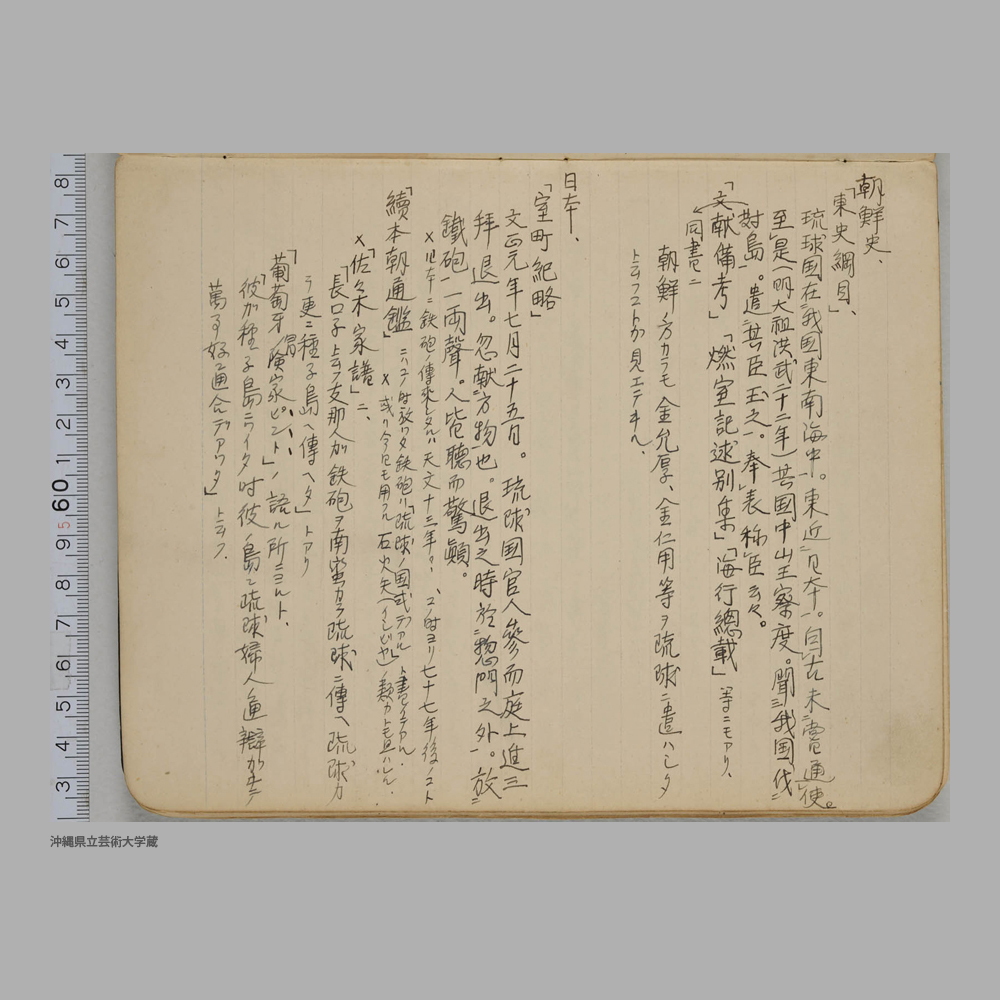 朝鮮史、
「東史綱目」、
琉球国在我国東南海中。東近日本。自古未嘗通使。
至是(明大祖洪武二十二年)其國中山王察度。聞我国伐
対島。遣其臣玉之。奉表称臣云々。
「文献備考」「燃室記述別集」「海行總載」等ニモアリ、
同書ニ
朝鮮ノ方カラモ金允厚、金仁用等ヲ琉球ニ遣ハシタ
トイフコトガ見エテヰル、
日本、
「室町紀略」
文正元年七月二十五日。琉球国官人參而庭上進三
拜退出。忽献方物也。退出之時於惣門之外。放
鐵砲一両聲。人皆聴而驚顛。
×日本ニ鉄砲ノ傳来シタルハ天文十三年。コノ時ヨリ七十七年後ノコト
「續本朝通鑑」ニハコノ時放ツタ鉄砲ハ「琉球ノ国式デアル」ト書イテアル.
×或ハ今日モ用フル石火矢(イシビヤ)ノ類カトモ思ハル.
×「佐々木家譜」ニ、
「長口子トイフ支那人ガ鉄砲ヲ南蛮カラ琉球ニ傳ヘ琉球カ
ラ更ニ種子島ヘ傳ヘタ」トアリ
「葡萄牙ノ冒険家ピント」ノ語ル所ニヨルト.
「彼ガ種子島ニライタ時彼ノ島ニ琉球婦人通辯ガ
萬事好都合デアツタ」トイフ.